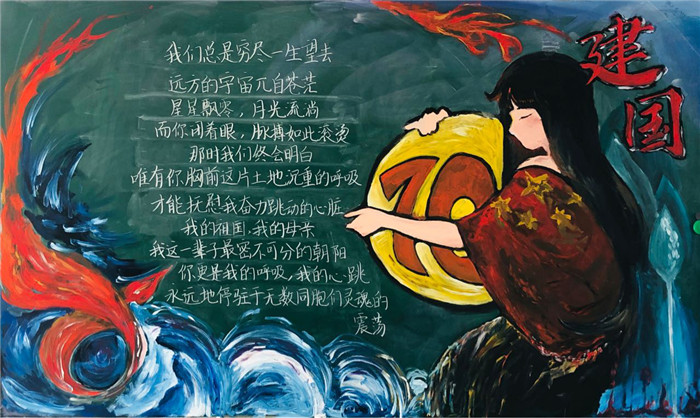 建国
我们总是穷尽一生望去
远方的宇宙兀自苍茫
星星飘零，月光流淌
而你闭着眼，脉搏如此滚烫
那时我们终会明白
唯有你胸前这片土地沉重的呼吸
才能抚慰我奋力跳动的心脏
我的祖国，我的母亲
我这一辈子最密不可分的朝阳
你更是我的呼吸，我的心跳
永远地停驻于无数同胞们灵魂的
震荡